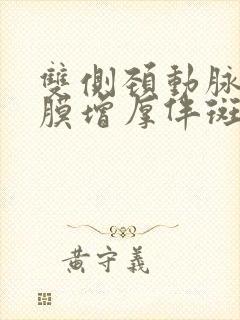 雙側頚動脉
膜增厚伴斑
黃守義